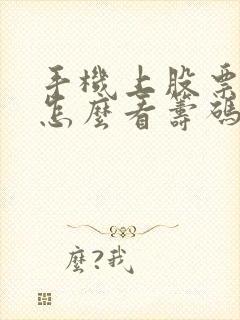 手機上股票
怎麼看籌碼
麼?我